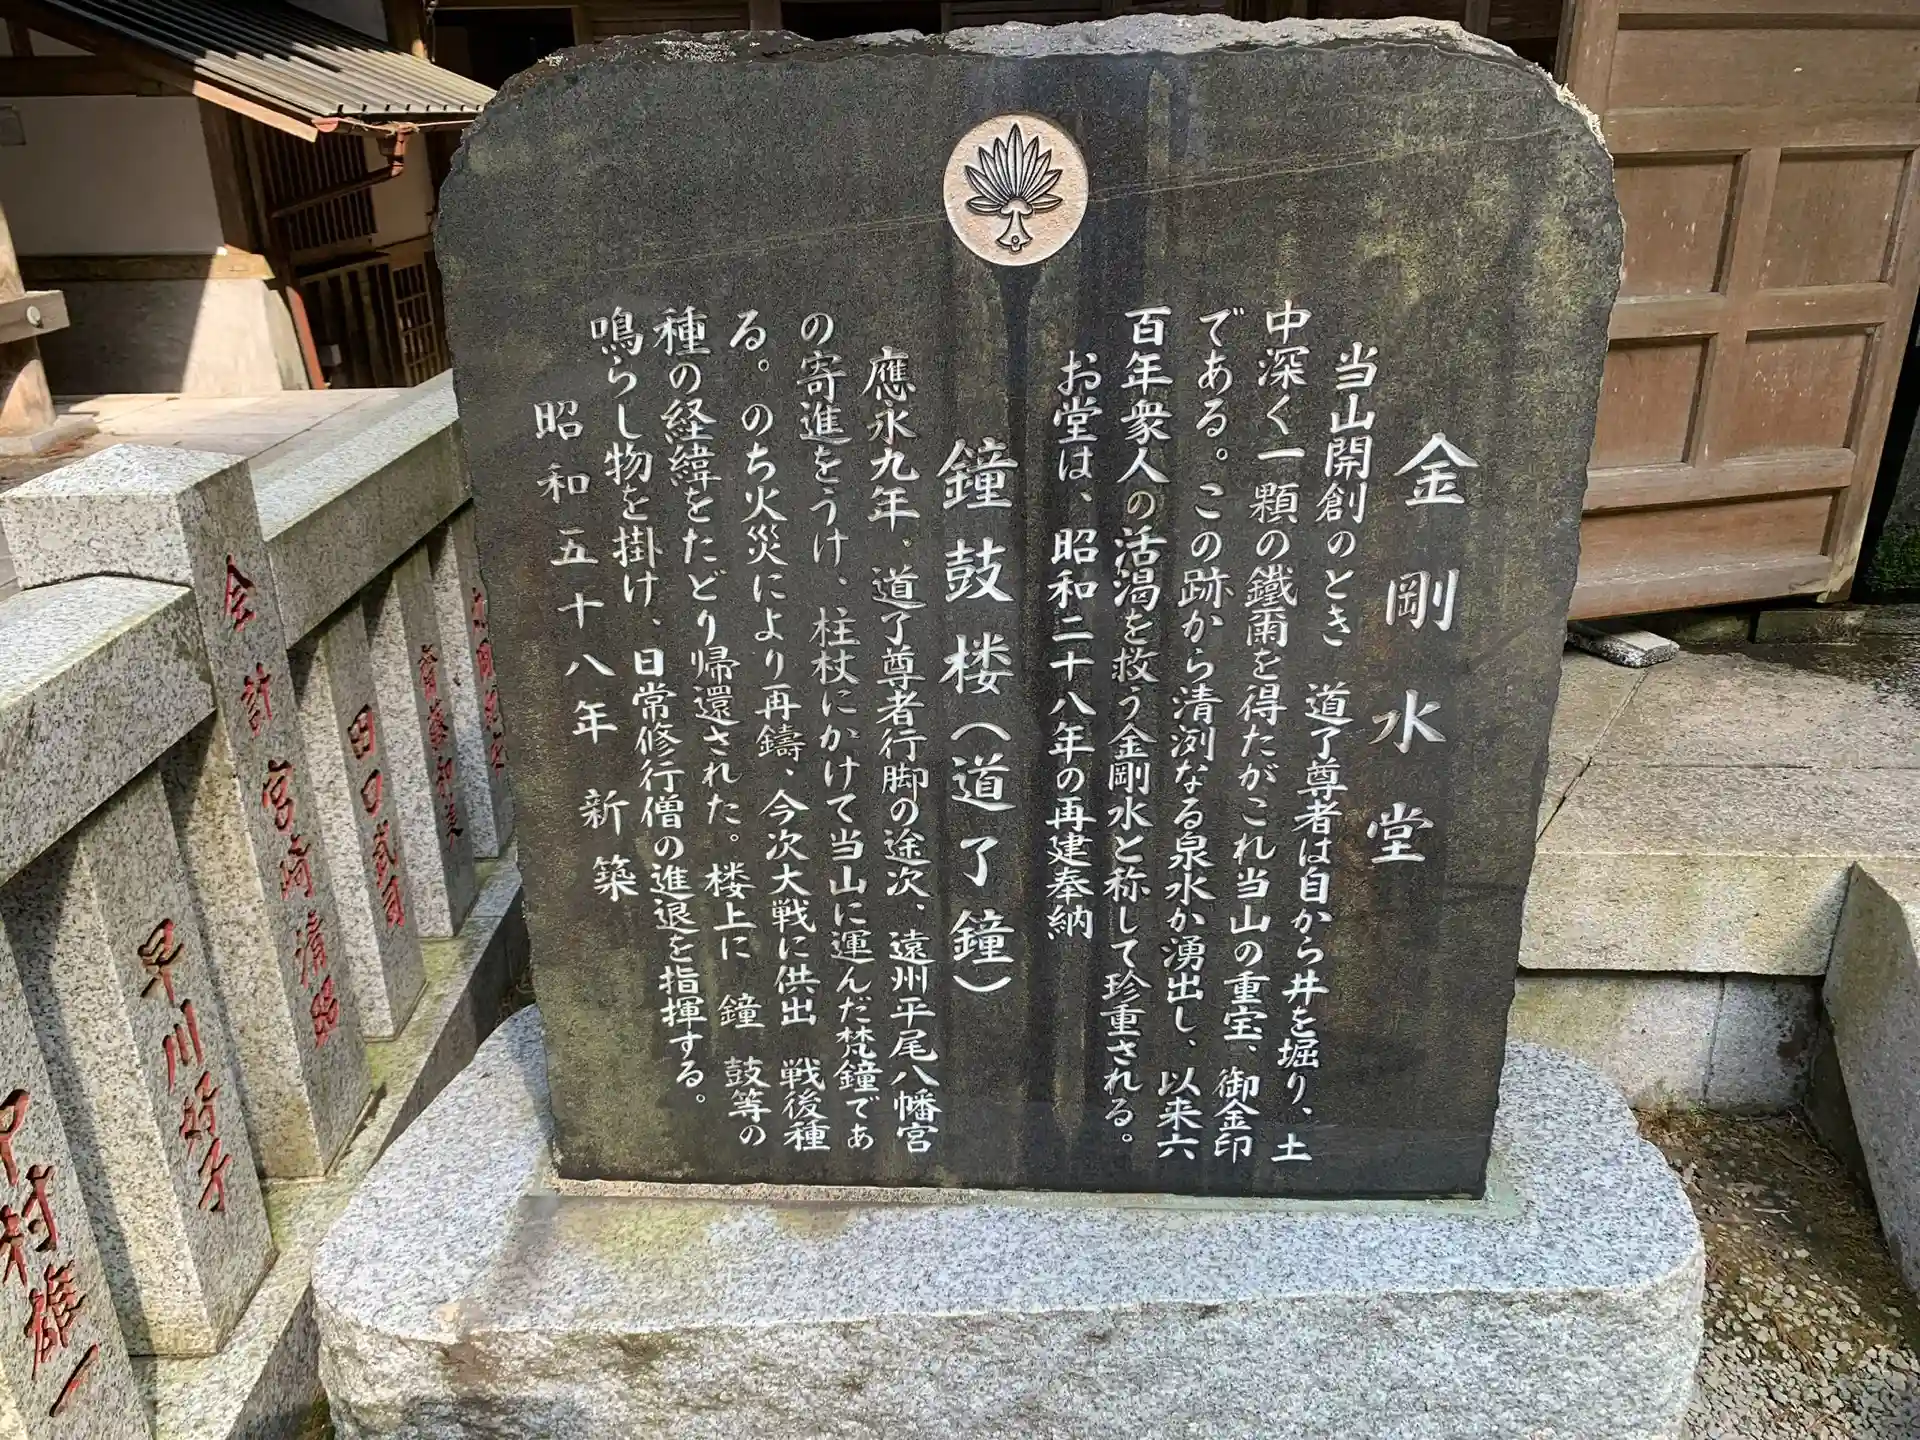 金剛水堂
当山開創のとき　道了尊者は自から井を堀り、土
中深く一顆の鐵爾を得たがこれ当山の重宝、御金印
である。この跡から清冽なる泉水か湧出し、以来六
百年衆人の活渇を救う金剛水と称して珍重される。
お堂は、昭和二十八年の再建奉納
鐘鼓楼（道了鐘）
應永九年、道了尊者行脚の途次、遠州平尾八幡宮
の寄進をうけ、柱杖にかけて当山に運んだ梵鐘であ
る。のち火災により再鑄、今次大戦に供出　戦後種
種の経緯をたどり帰還された。楼上に　鐘　鼓等の
鳴らし物を掛け、日常修行僧の進退を指揮する。
昭和五十八年　新築
会計　宮崎清昭
田口
早川